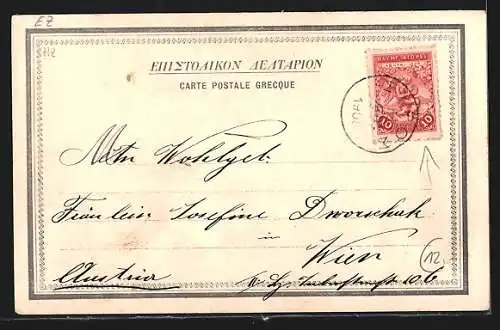 EZ
ΕΠΙΣΤΟΛΙΚΟΝ ΔΕΛΤΑΡΙΟΝ
CARTE POSTALE GRECQUE
10 10
190
Wohlgeb.
Fräulein Josefine Dworschak
in
Wien
12
Austria
106